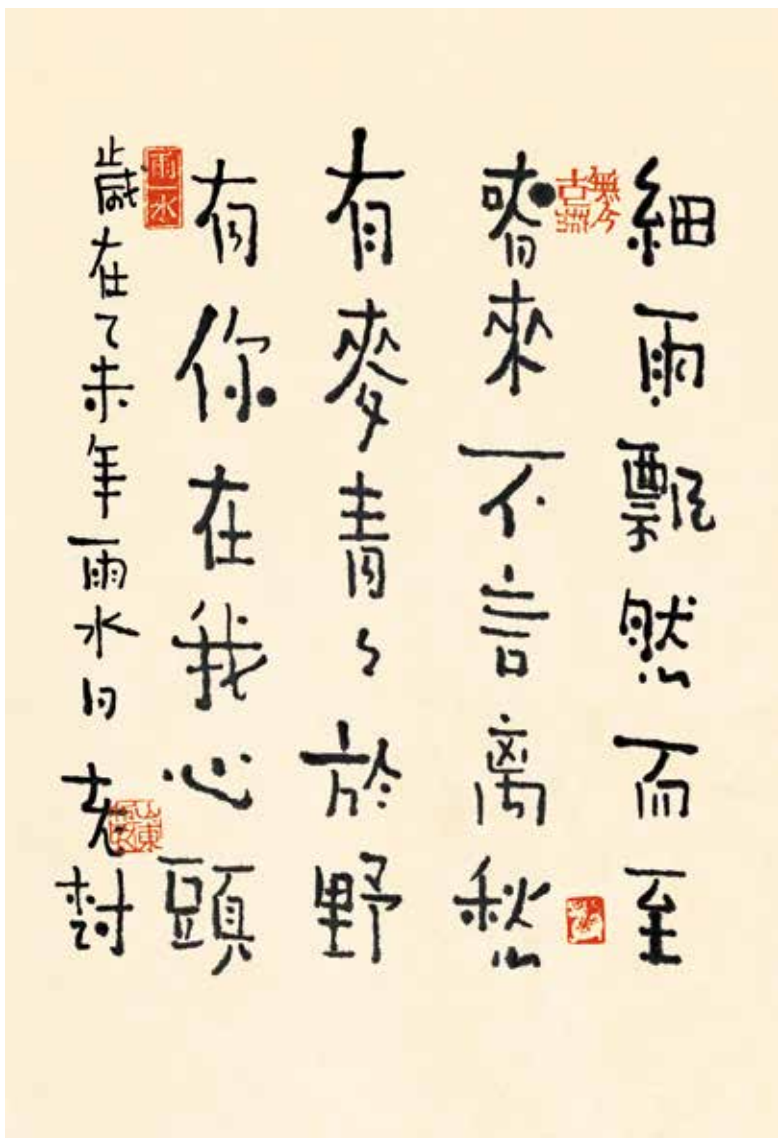 細雨飄然而至
春來不言离愁
有麥青々於野
有你在我心頭
雨水
歲在乙未年雨水日 老树